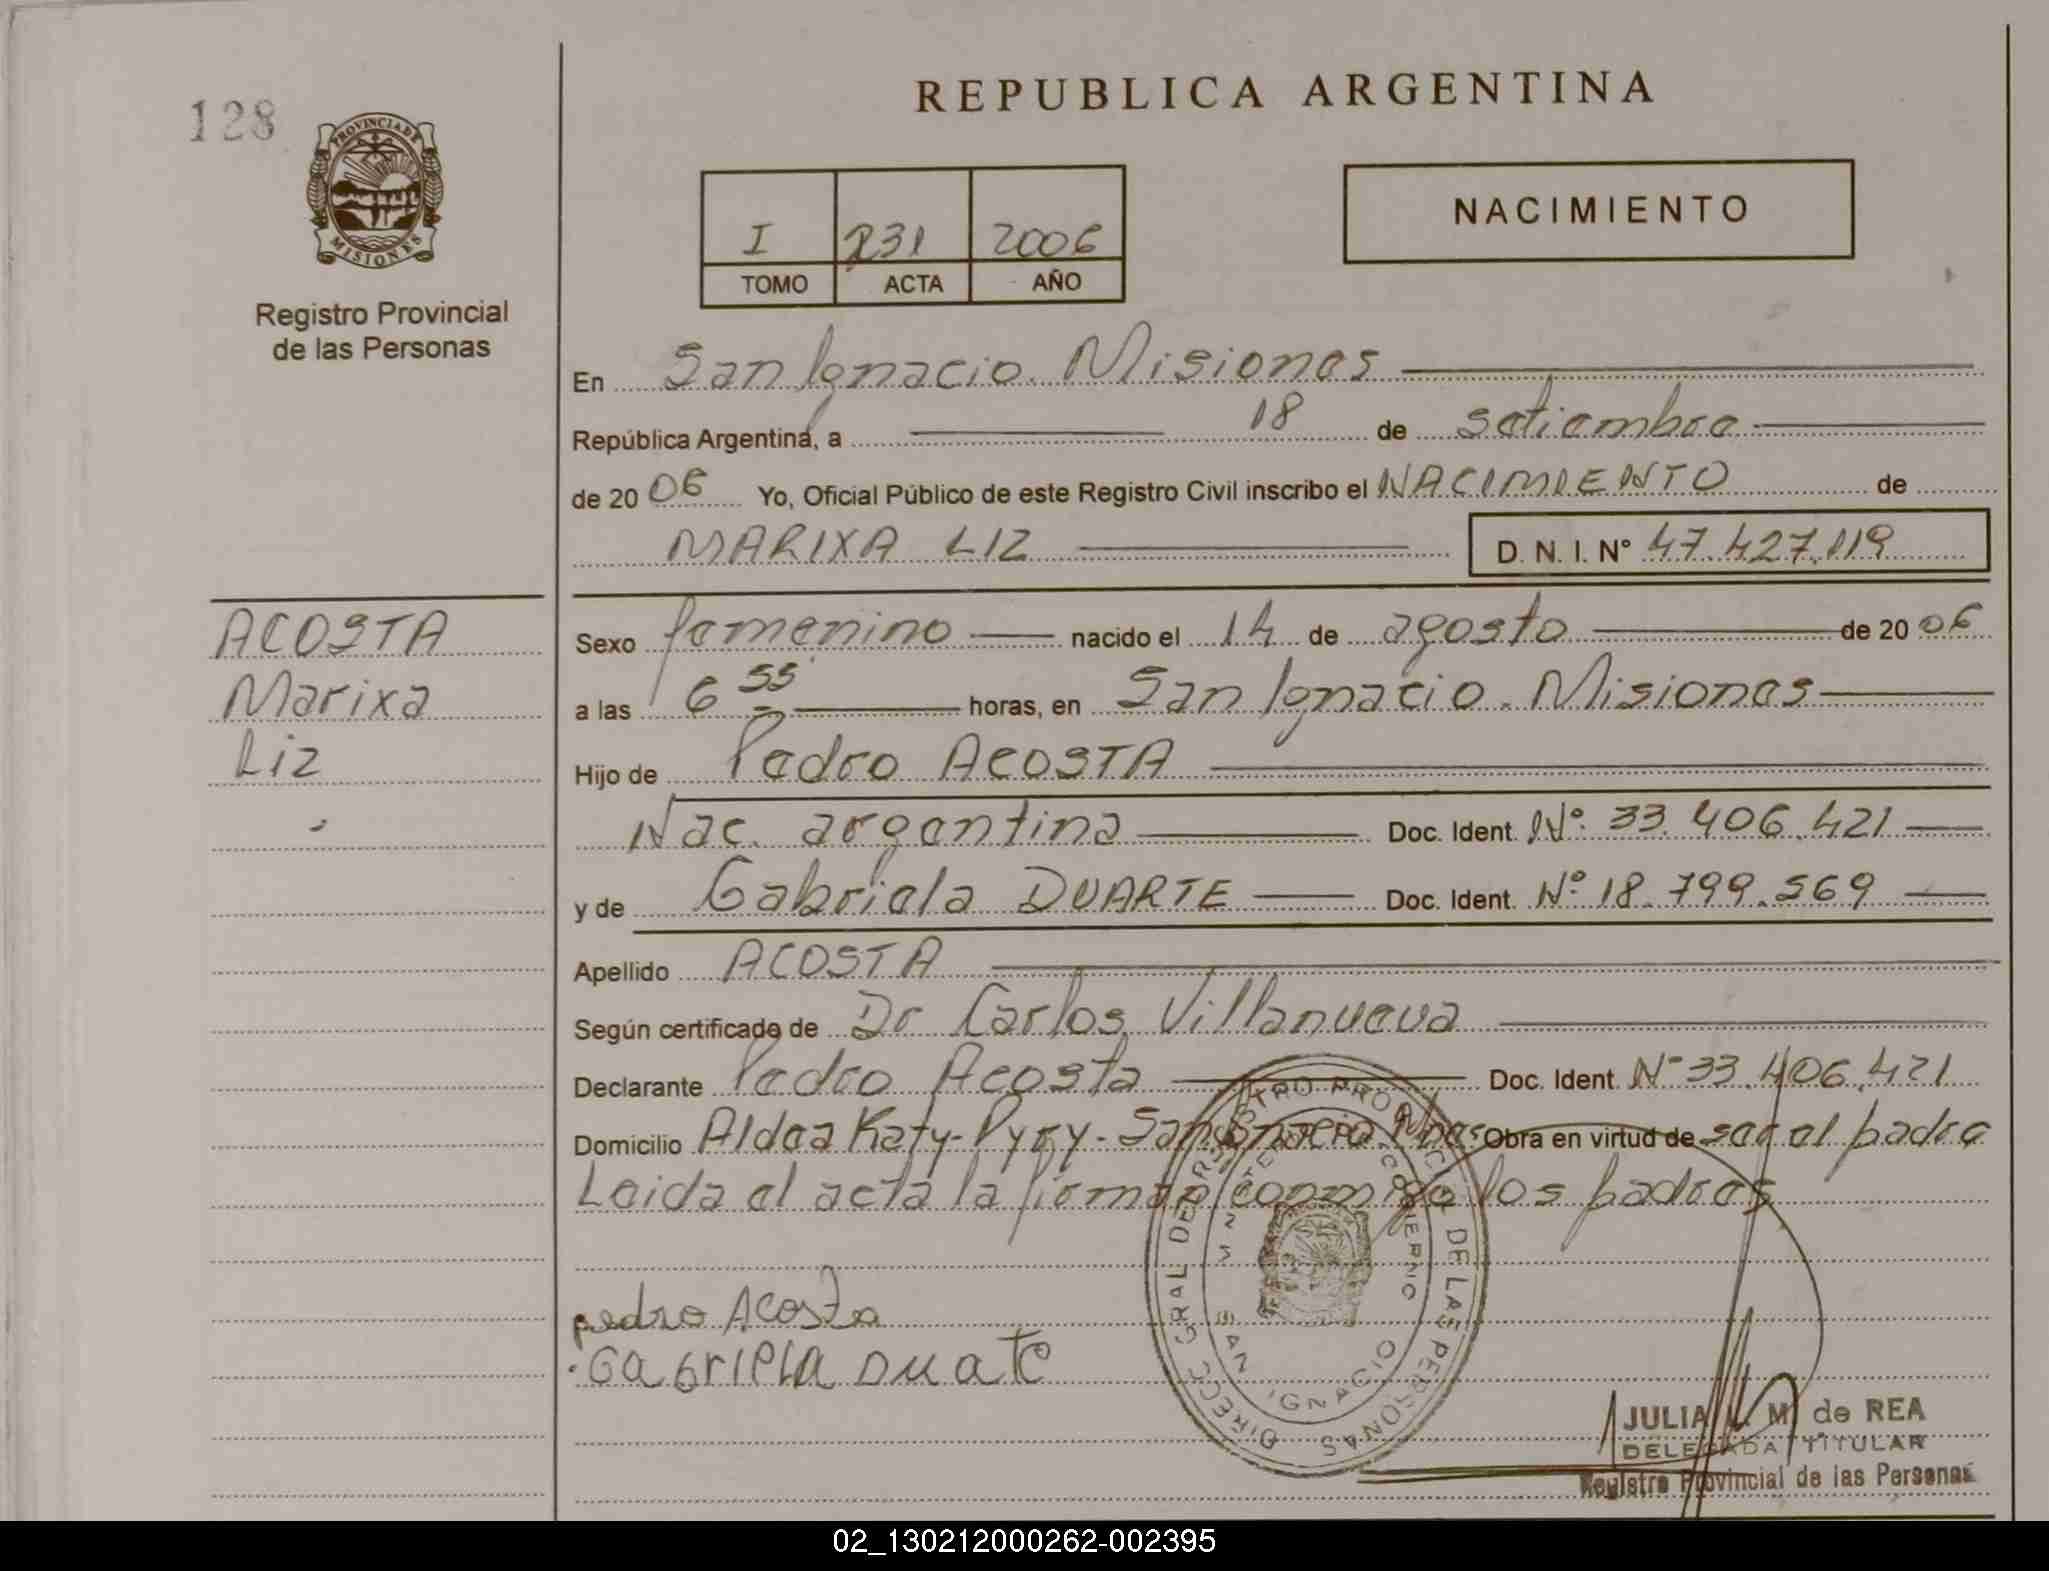 128
PROVINCIA DE
MISIONES
Registro Provincial
de las Personas
REPUBLICA ARGENTINA
I 231 2006
TOMO ACTA AÑO
NACIMIENTO
En San Ignacio. Misiones
República Argentina, a 18 de setiembre
de 20 06 Yo, Oficial Público de este Registro Civil inscribo el NACIMIENTO de
MARIXA LIZ D. N. I. N° 47.427.119
ACOSTA
Marixa
Liz
Sexo femenino nacido el 14 de agosto de 20 06
a las 6 55 horas, en San Ignacio. Misiones
Hijo de Pedro ACOSTA
Nac. argentina Doc. Ident. N° 33.406.421
y de Gabriela DUARTE Doc. Ident. N° 18.799.569
Apellido ACOSTA
Según certificado de Dr Carlos Villanueva
Declarante Pedro Acosta Doc. Ident. N° 33.406.421
Domicilio Aldea Katy-Pyry-San Ignacio Mnes Obra en virtud de ser el padre
Leida el acta la firman conmigo los padres
pedro Acosta
GabrielA DuaTe
DIRECC GRAL DE REGISTRO PROVINCIAL DE LAS PERSONAS
MINISTERIO DE GOBIERNO
SAN IGNACIO
JULIA L. M. de REA
DELEGADA TITULAR
Registro Provincial de las Personas
02_130212000262-002395